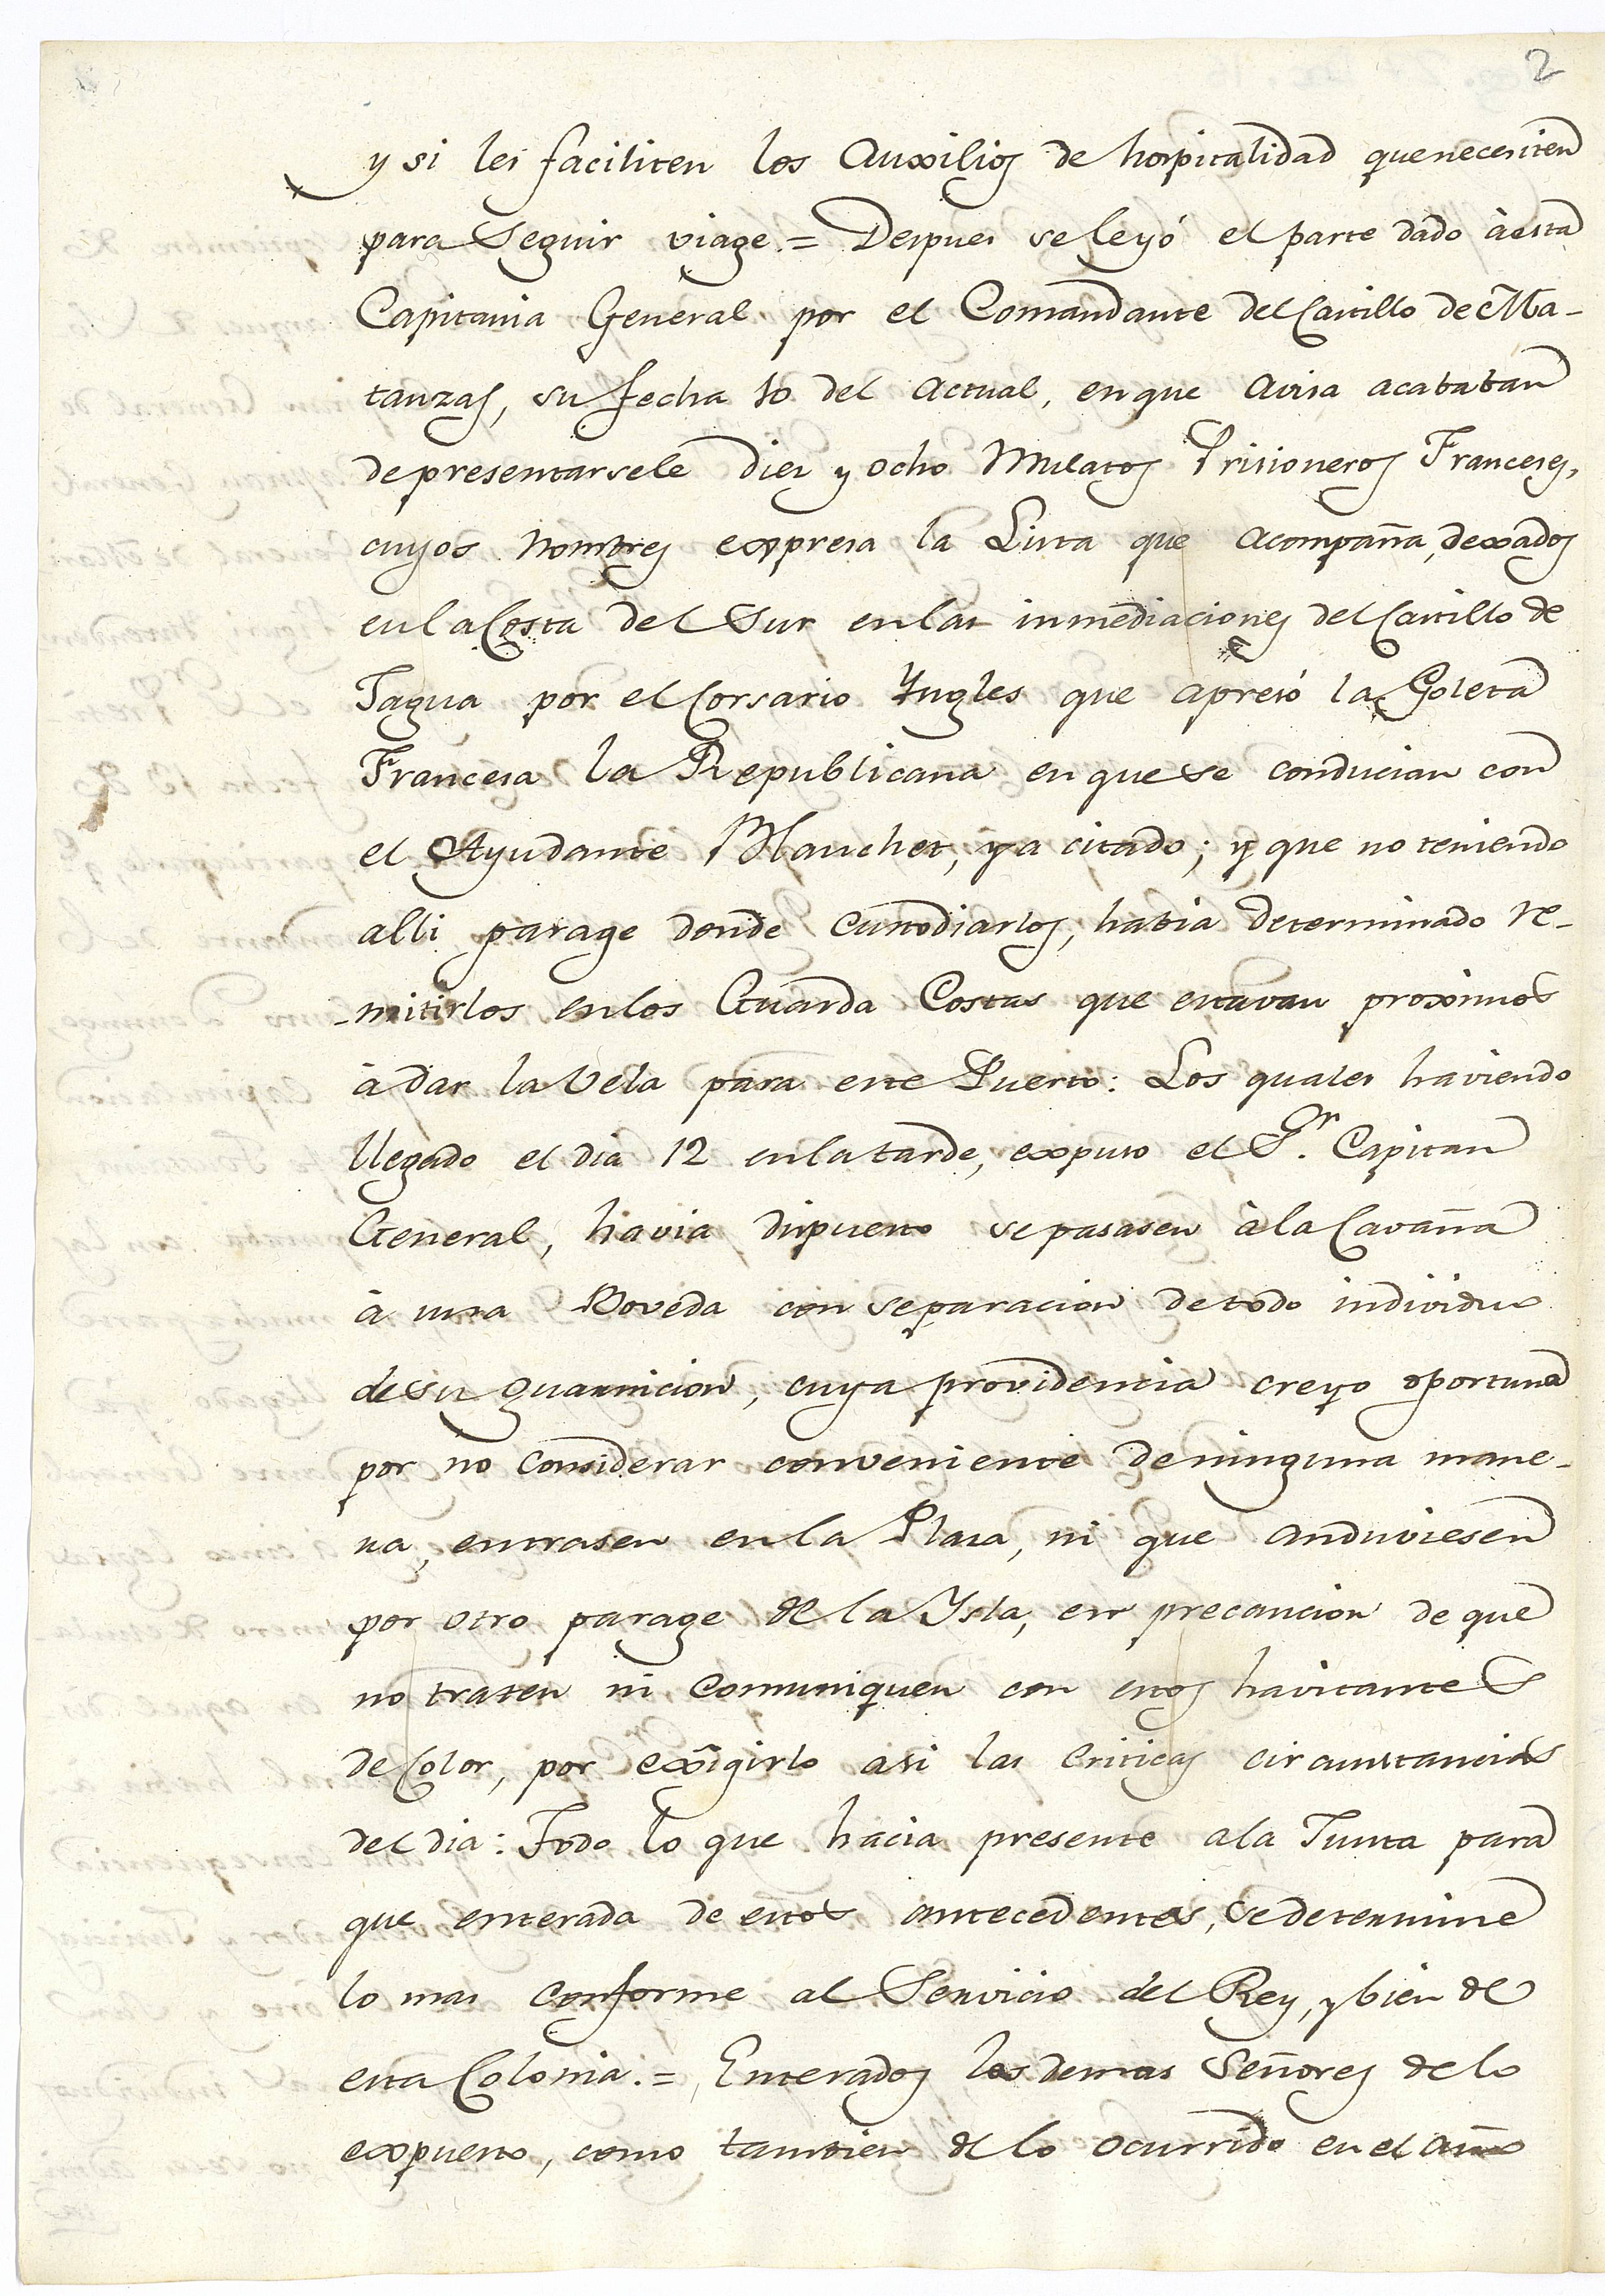 2
y si les faciliten los Auxilios de hospitalidad que necesiten
para seguir viage. = Despues se leyó el parte dado à esta
Capitania General por el Comandante del Castillo de Ma-
tanzas, su fecha 10 del actual, en que avisa acababan
de presentarsele diez y ocho Mulatos Prisioneros Franceses,
cuyos nombres expresa la Lista que acompaña, dexados
en la Costa del Sur en las inmediaciones del Castillo de
Jagua por el Corsario Yngles que apresó la Goleta
Francesa la Republicana en que se conducian con
el Ayudante Blanchet, ya citado; y que no teniendo
alli parage donde custodiarlos, habia determinado re-
-mitirlos en los Guarda Costas que estavan proximos
à dar la Vela para este Puerto: Los quales haviendo
llegado el dia 12 en la tarde, expuso el S.or Capitan
General, havia dispuesto se pasasen à la Cavaña
à una Boveda con separacion de todo individuo
de su guarnicion, cuya providencia creyo oportuna
por no considerar conveniente de ninguna mane-
ra, entrasen en la Plaza, ni que anduviesen
por otro parage de la Ysla, en precaucion de que
no traten ni comuniquen con estos havitantes
de Color, por exîgirlo asi las criticas circunstancias
del dia: Todo lo que hacia presente a la Junta para
que enterada de estos antecedentes, se determine
lo mas conforme al Servicio del Rey, y bien de
esta Colonia. = Enterados los demas Señores de lo
expuesto, como tambien de lo ocurrido en el año